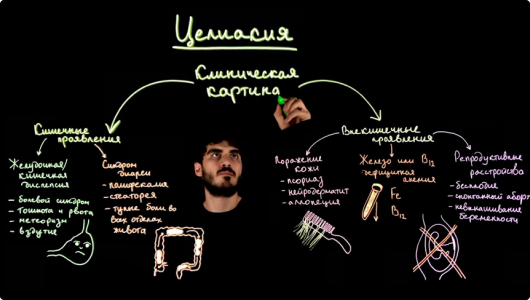 Целиакия
Клиническая
картина
Кишечные
проявления
Желудочная/
кишечная
диспепсия
- болевой синдром
- тошнота и рвота
- метеоризм
- вздутие
Синдром
диареи
- полифекалия
- стеаторея
- тупые боли во
всех отделах
живота
Внекишечные
проявления
Поражение
кожи
- псориаз
- нейродермит
- аллопеция
Железо или B12
дефицитная
анемия
Fe
B12
Репродуктивные
расстройства
- бесплодие
- спонтанный аборт
- невынашивание
беременности